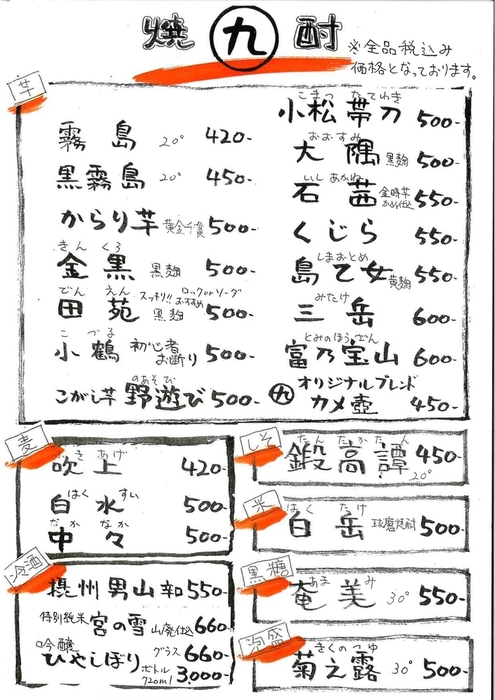 焼 九 酎
※全品税込み
価格となっております。
芋
霧島 20° 420-
黒霧島 20° 450-
からり芋 黄金千貫 500-
きんくろ
金黒 黒麹 500-
でんえん スッキリ!! ロックorソーダ おすすめ
田苑 黒麹 500-
こづる
小鶴 初心者お断り 500-
のあそび
こがし芋 野遊び 500-
こまつたてわき
小松帯刀 500-
おおすみ
大隅 黒麹 500-
いしあかね
石茜 金時芋かめ仕込 550-
くじら 550-
しまおとめ
島乙女 黄麹 550-
みたけ
三岳 600-
とみのほうざん
富乃宝山 600-
オリジナルブレンド
九 カメ壺 450-
麦
ふきあげ
吹上 420-
はくすい
白水 500-
なかなか
中々 500-
冷酒
摂州男山 辛口 550-
特別純米 宮の雪 山廃仕込 660-
吟醸 グラス 660-
ひやしぼり ボトル 720ml 3,000-
しそ
たんたかたん
鍛高譚 20° 450-
米
はくたけ
白岳 球磨焼酎 500-
黒糖
あまみ
奄美 30° 550-
泡盛
きくのつゆ
菊之露 30° 500-